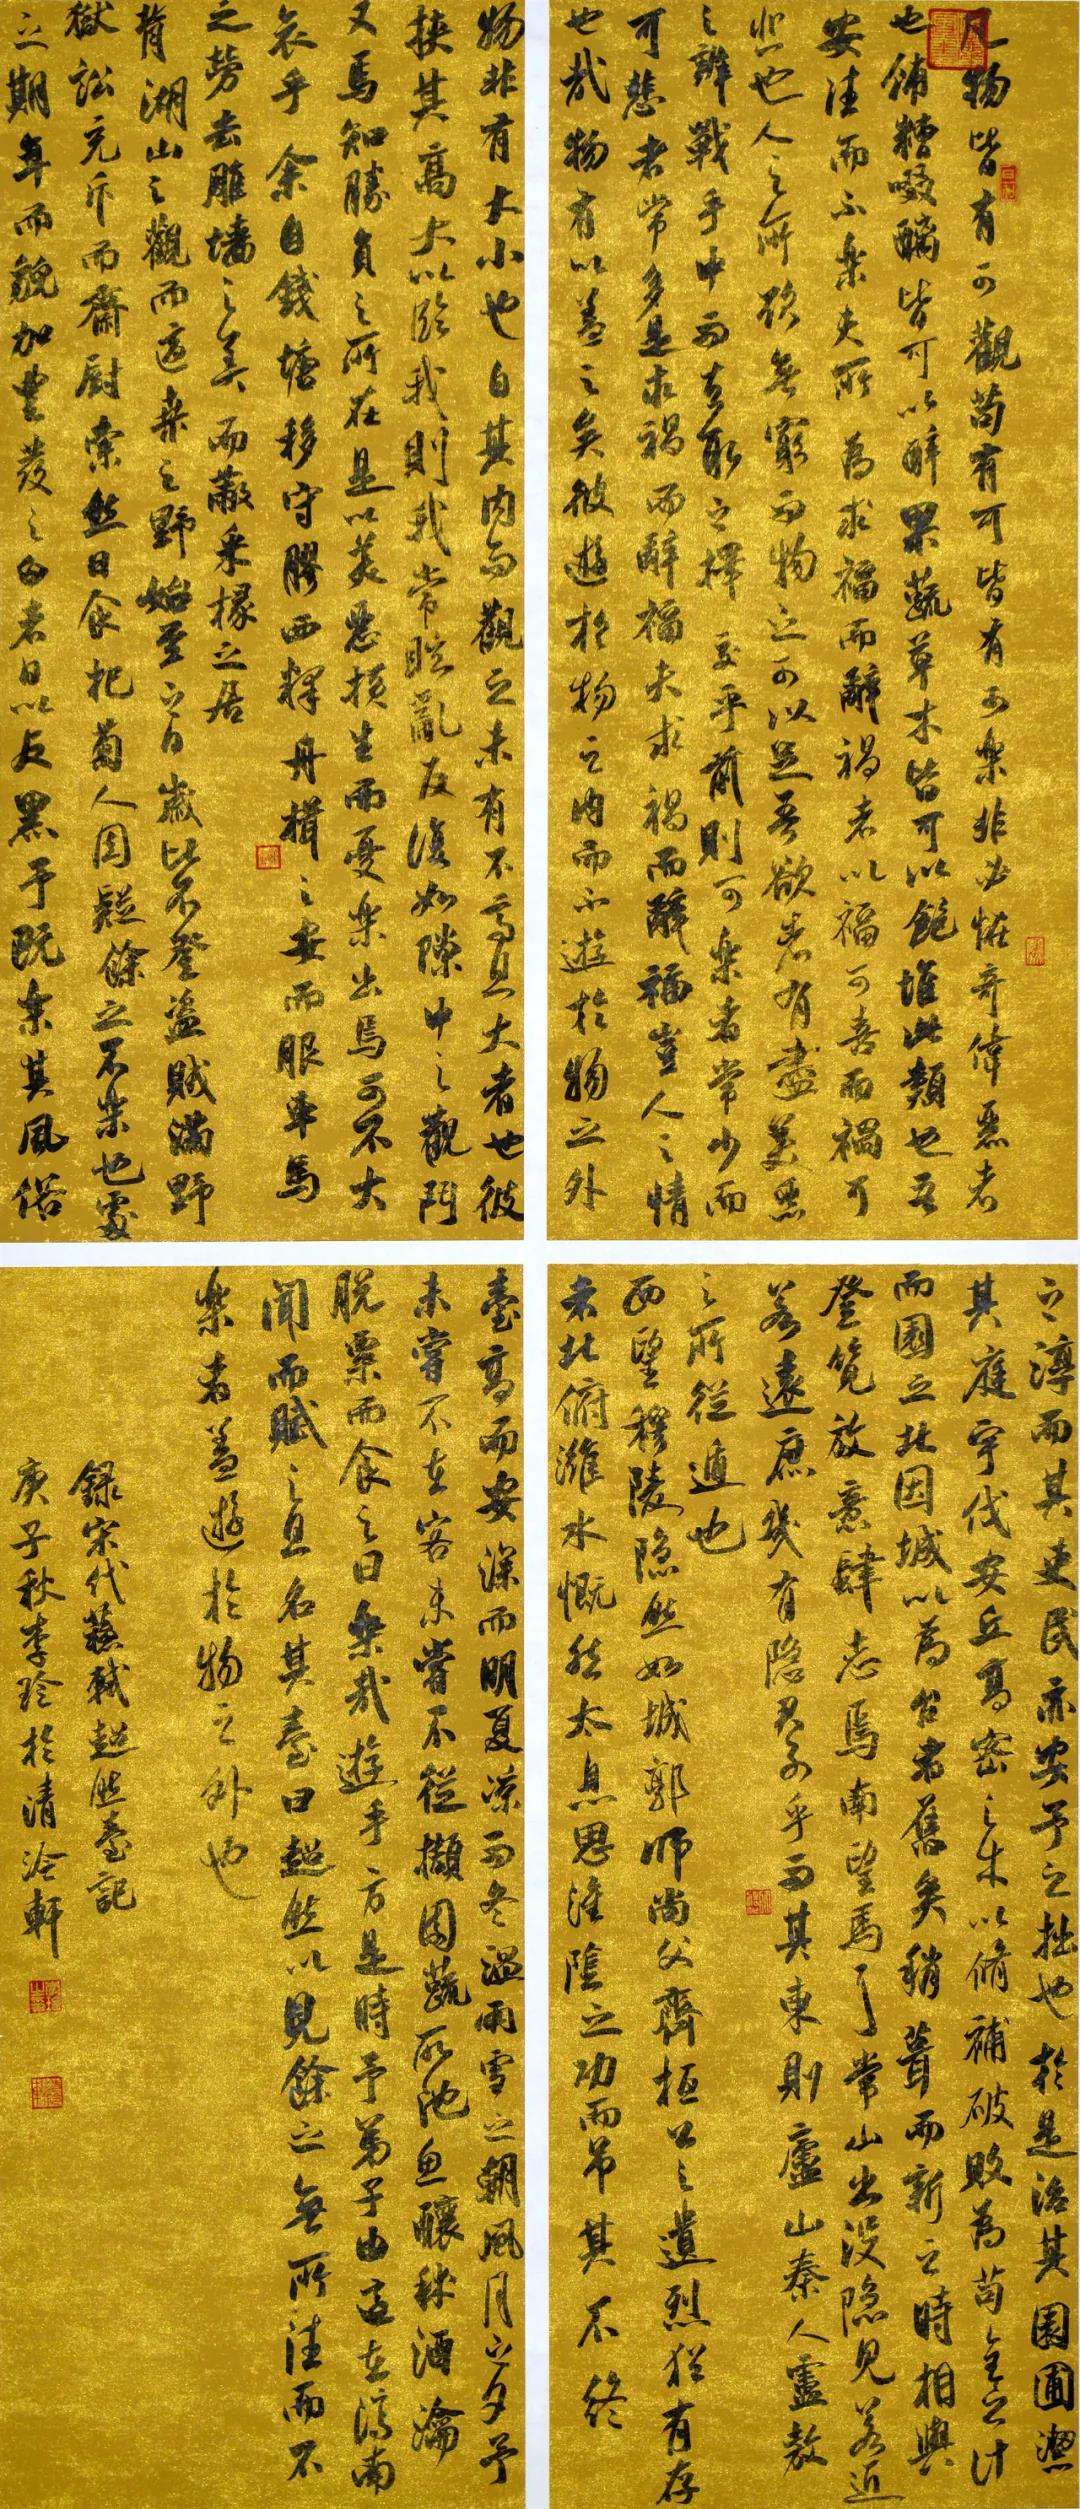 凡物皆有可觀苟有可皆有可樂非必怪奇偉惡者
也餔糟啜醨皆可以醉果蔬草木皆可以飽推此類也吾
安往而不樂夫所為求福而辭禍者以福可喜而禍可
悲也人之所欲無窮而物之可以足吾欲者有盡美惡
之辨戰乎中而去取之擇交乎前則可樂者常少而
可悲者常多是求禍而辭福夫求禍而辭福豈人之情
也哉物有以蓋之矣彼遊於物之內而不遊於物之外
物非有大小也自其內而觀之未有不高且大者也彼
挾其高大以臨我則我常眩亂反復如隙中之觀鬥
又焉知勝負之所在是以美惡橫生而憂樂出焉可不大
哀乎余自錢塘移守膠西釋舟楫之安而服車馬
之勞去雕墻之美而蔽采椽之居
背湖山之觀而適桑之野始至之日歲比不登盜賊滿野
獄訟充斥而齋廚索然日食杞菊人固疑餘之不樂也處
之期年而貌加豐髮之白者日以反黑予既樂其風俗
之淳而其吏民亦安予之拙也於是治其園圃潔
其庭宇伐安丘高密之木以脩補破敗為苟全之計
而園之北因城以為台者舊矣稍葺而新之時相與
登覽放意肆志焉南望馬了常山出沒隱見若近
若遠庶幾有隱君子乎而其東則廬山秦人盧敖
之所從遁也
西望穆陵隱然如城郭師尚父齊桓公之遺烈猶有存
者北俯濰水慨然太息思淮陰之功而弔其不終
臺高而安深而明夏涼而冬溫雨雪之朝風月之夕予
未嘗不在客未嘗不從擷園蔬取池魚釀秫酒瀹
脫粟而食之曰樂哉遊乎方是時予弟子由適在濟南
聞而賦之且名其臺曰超然以見餘之無所往而不
樂者蓋遊於物之外也
錄宋代蘇軾超然臺記
庚子秋李玲於清泠軒